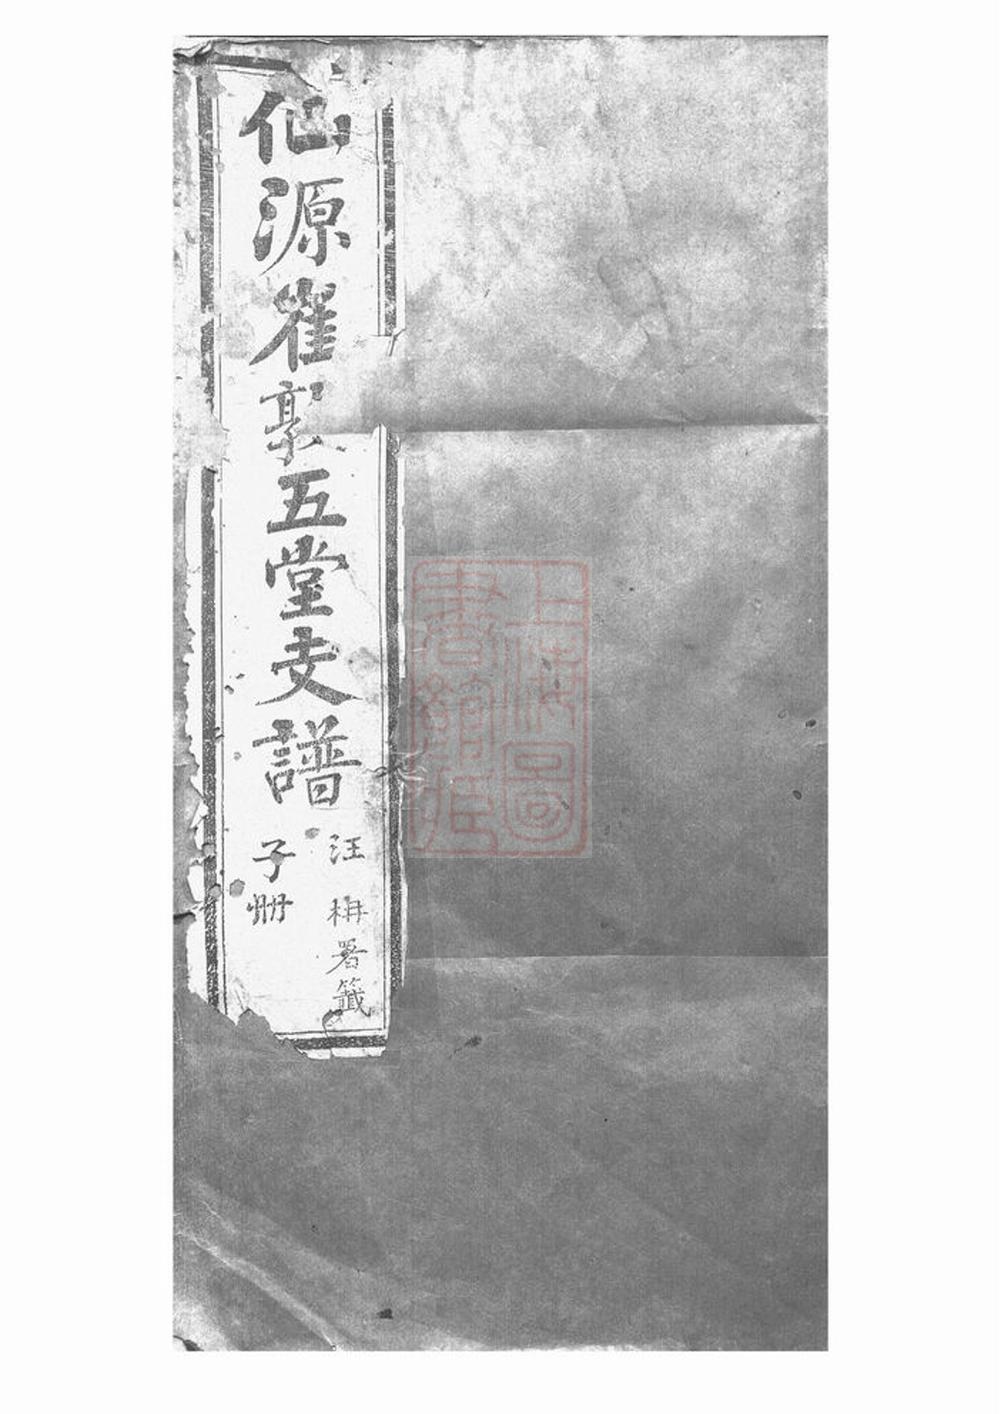 仙源崔敦五堂支譜
汪柟署籤
子册
上海圖
書館藏